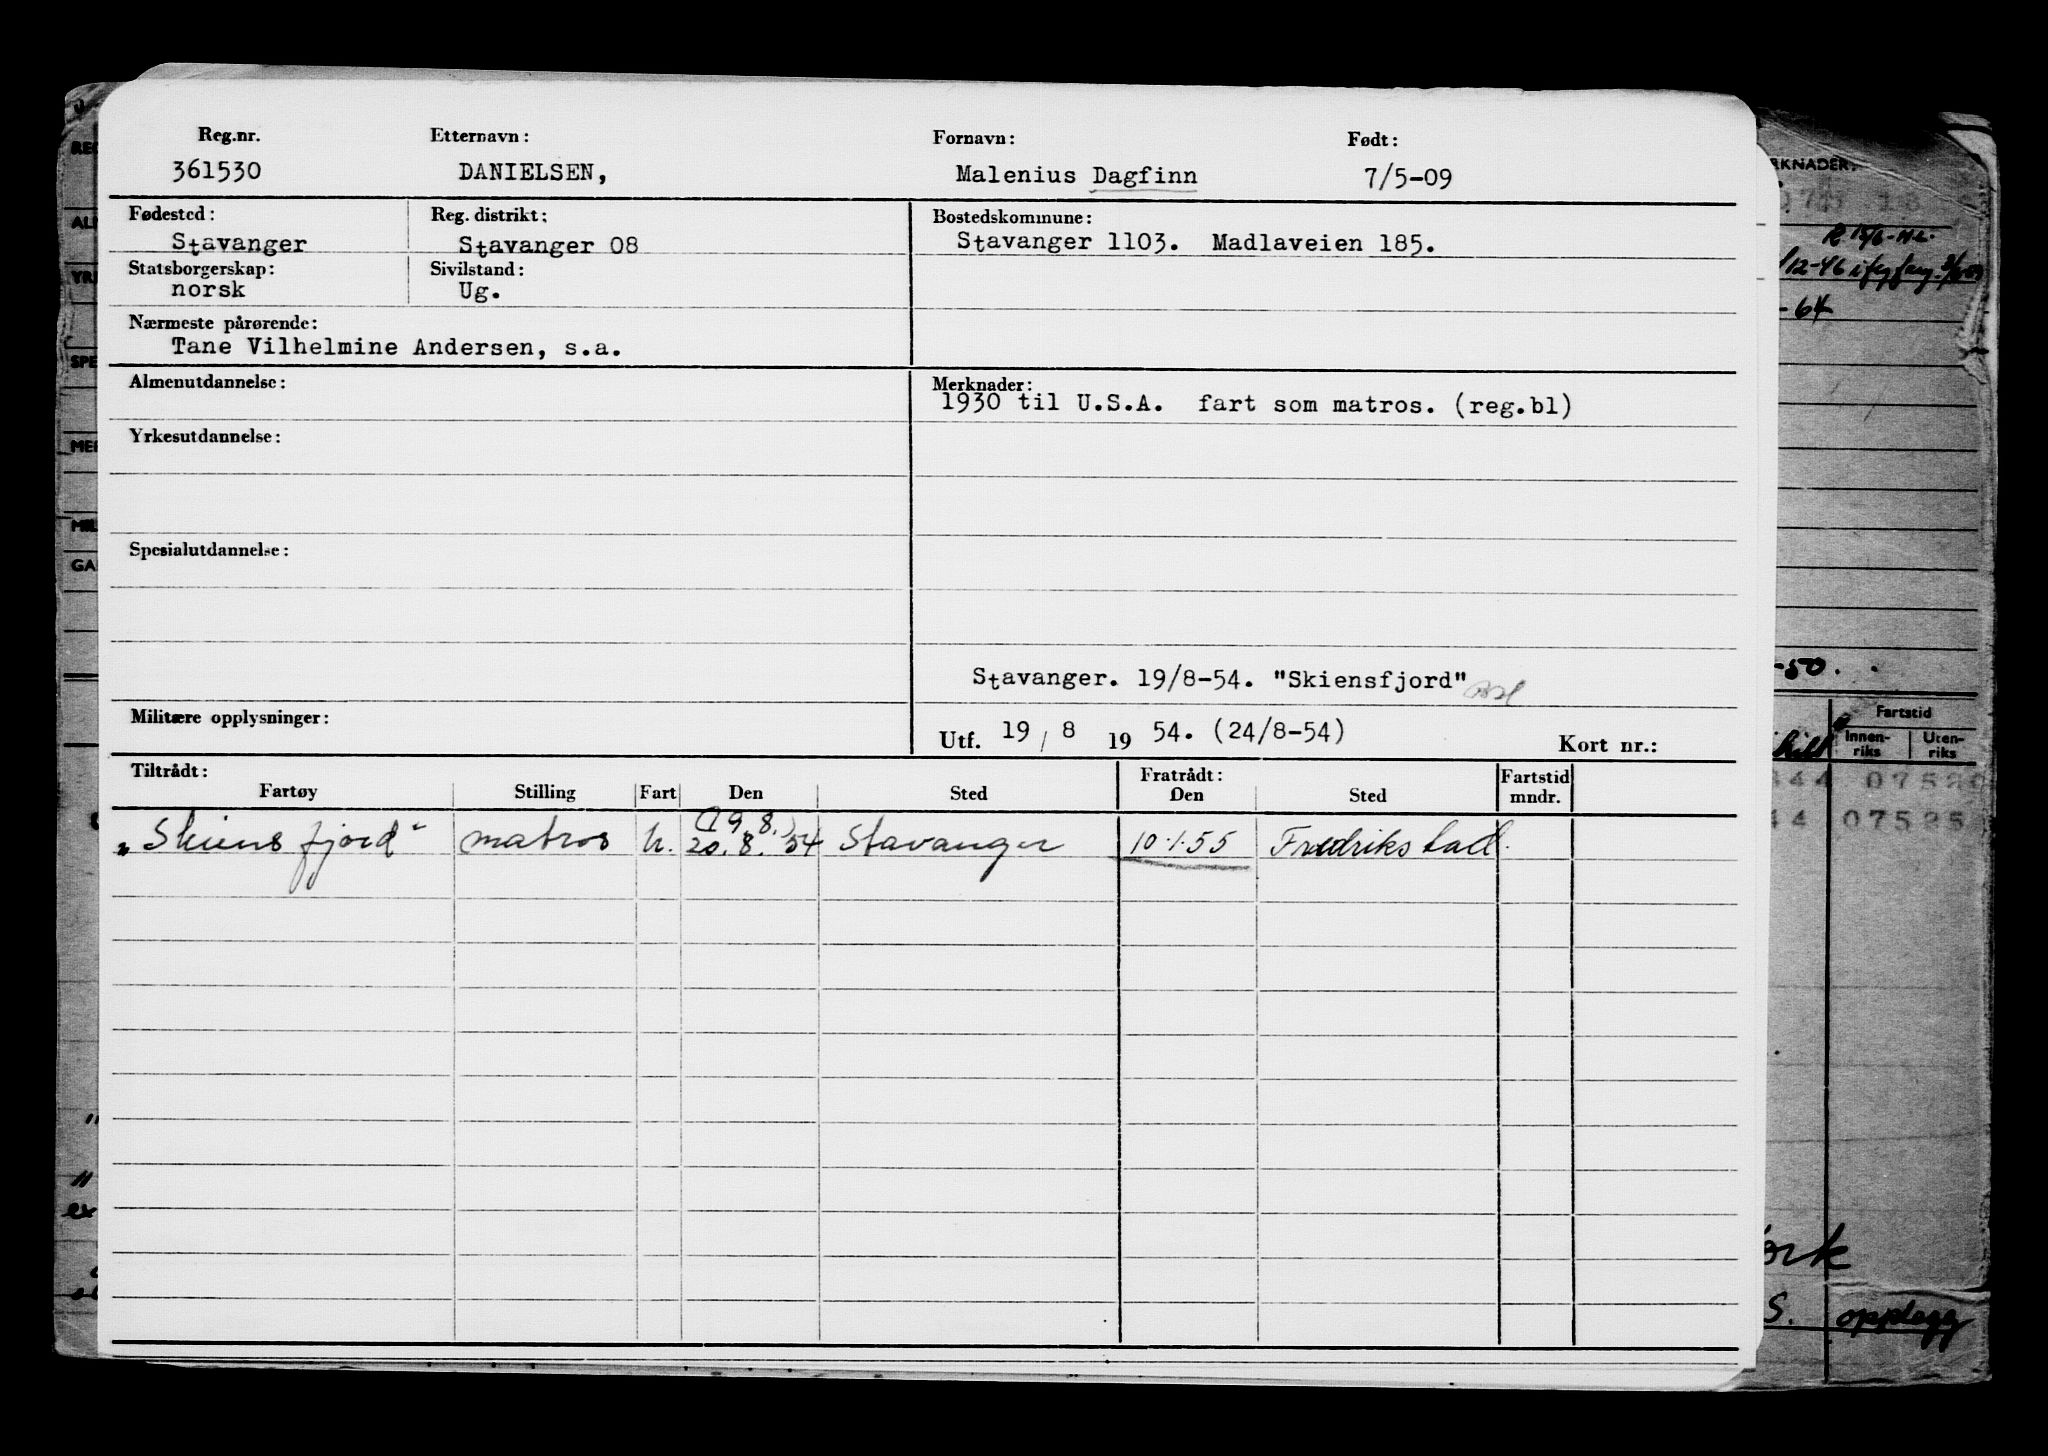 Reg.nr. Etternavn: Fornavn: Født:
361530 DANIELSEN, Malenius Dagfinn 7/5-09
Fødested: Reg. distrikt: Bostedskommune:
Stavanger Stavanger 08 Stavanger 1103. Madlaveien 185.
Statsborgerskap: Sivilstand:
norsk Ug.
Nærmeste pårørende:
Tane Vilhelmine Andersen, s.a.
Almenutdannelse: Merknader:
1930 til U.S.A. fart som matros. (reg.bl)
Yrkesutdannelse:
Spesialutdannelse:
Stavanger. 19/8-54. "Skiensfjord"
Militære opplysninger: Utf. 19 / 8 19 54. (24/8-54) Kort nr.:
Tiltrådt: Fratrådt: Fartstid
Fartøy Stilling Fart Den Sted Den Sted mndr.
(19.8.)
„Skiensfjord" matros u. 20.8.54 Stavanger 10.1.55 Fredrikstad.
RKNADER:
12-46
-64
-50.
Fartstid
Innen-riks Uten-riks
44 07525
44 07525
ork
S. opplegg